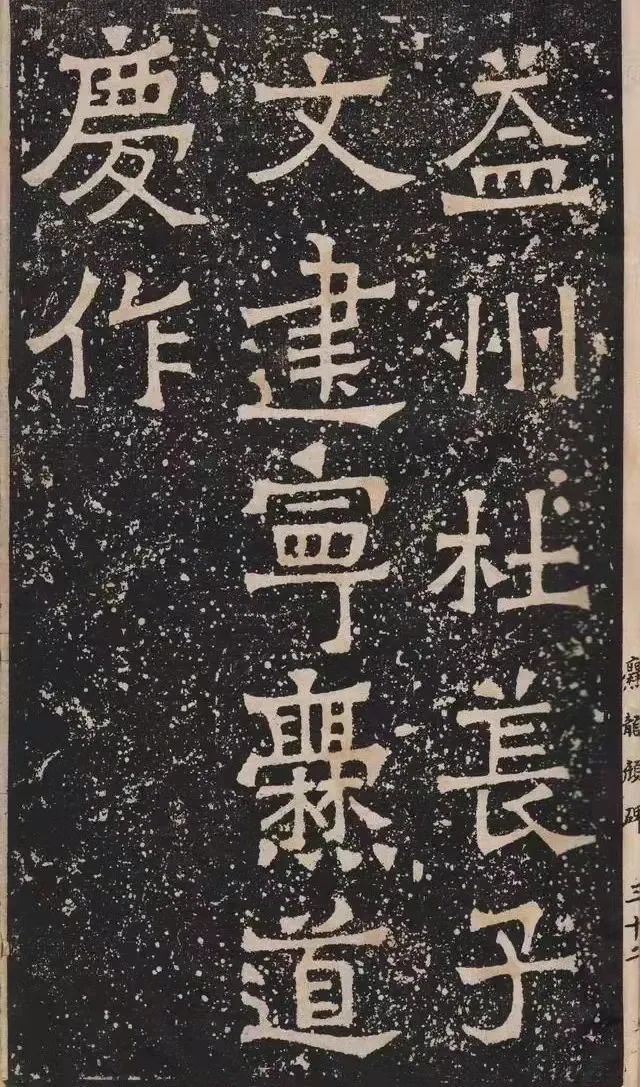 益州杜萇子
文建寧爨道
慶作
爨龍顔碑 三十二